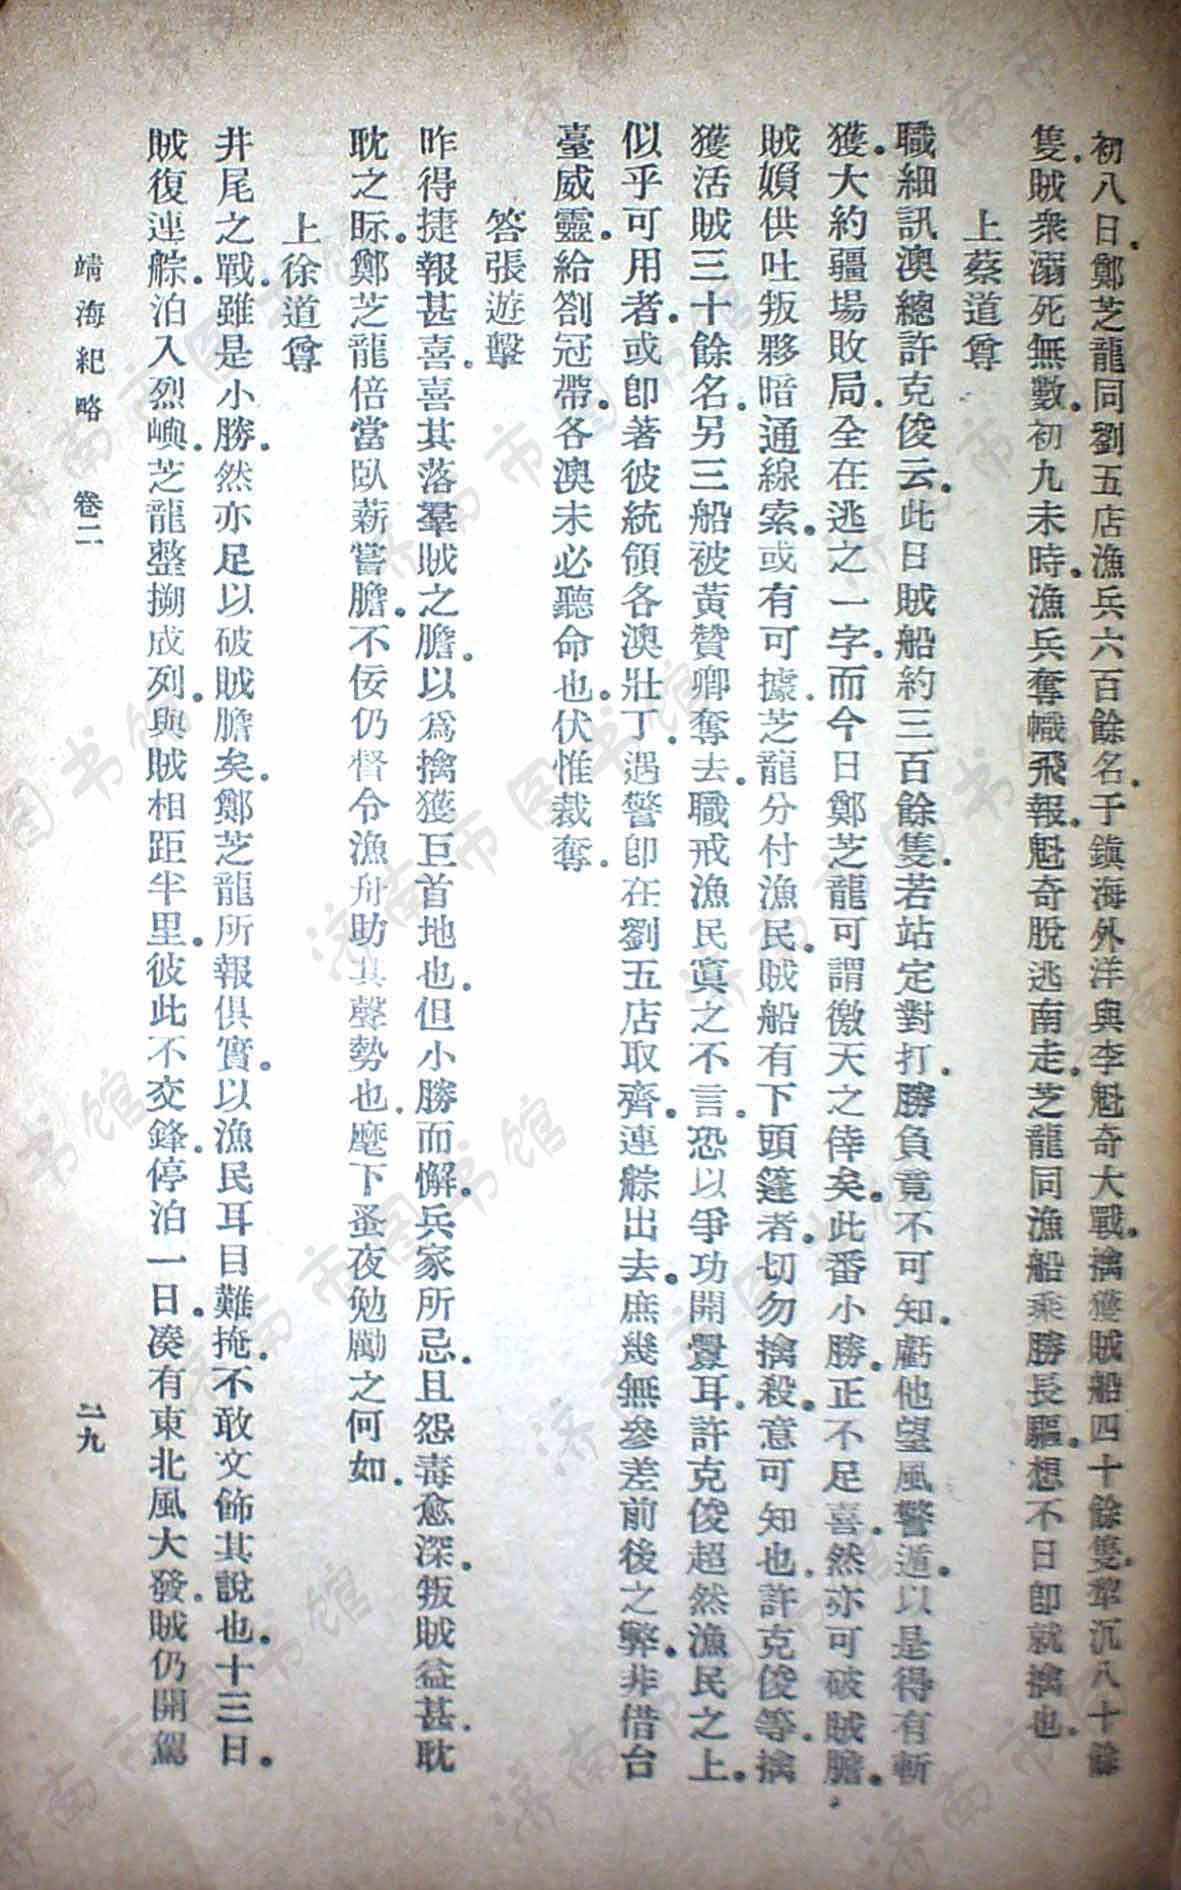 初八日。鄭芝龍同劉五店漁兵六百餘名。于鎮海外洋與李魁奇大戰。擒獲賊船四十餘隻。犂沉八十餘
隻。賊衆溺死無數。初九未時。漁兵奪幟飛報。魁奇脫逃南走。芝龍同漁船乘勝長驅。想不日卽就擒也。
上蔡道尊
職細訊澳總許克俊云。此日賊船約三百餘隻。若站定對打。勝負竟不可知。虧他望風驚遁。以是得有斬
獲。大約疆場敗局。全在逃之一字。而今日鄭芝龍可謂徼天之倖矣。此番小勝。正不足喜。然亦可破賊膽。
賊嬪供吐叛夥暗通線索。或有可據。芝龍分付漁民。賊船有下頭篷者。切勿擒殺。意可知也。許克俊等。擒
獲活賊三十餘名。另三船被黃贊卿奪去。職戒漁民寘之不言。恐以爭功開釁耳。許克俊超然漁民之上。
似乎可用者。或卽著彼統領各澳壯丁。遇警卽在劉五店取齊。連䑸出去。庶幾無參差前後之弊。非借台
臺威靈。給劄冠帶。各澳未必聽命也。伏惟裁奪。
答張遊擊
昨得捷報甚喜。喜其落羣賊之膽。以爲擒獲巨首地也。但小勝而懈。兵家所忌。且怨毒愈深。叛賊益甚。耽
耽之眎。鄭芝龍倍當臥薪嘗膽。不佞仍督令漁舟助其聲勢也。麾下蚤夜勉勵之何如。
上徐道尊
井尾之戰。雖是小勝。然亦足以破賊膽矣。鄭芝龍所報俱實。以漁民耳目難掩。不敢文飾其說也。十三日。
賊復連䑸。泊入烈嶼。芝龍整搠成列。與賊相距半里。彼此不交鋒。停泊一日。湊有東北風大發。賊仍開駕
靖海紀略 卷二
二九